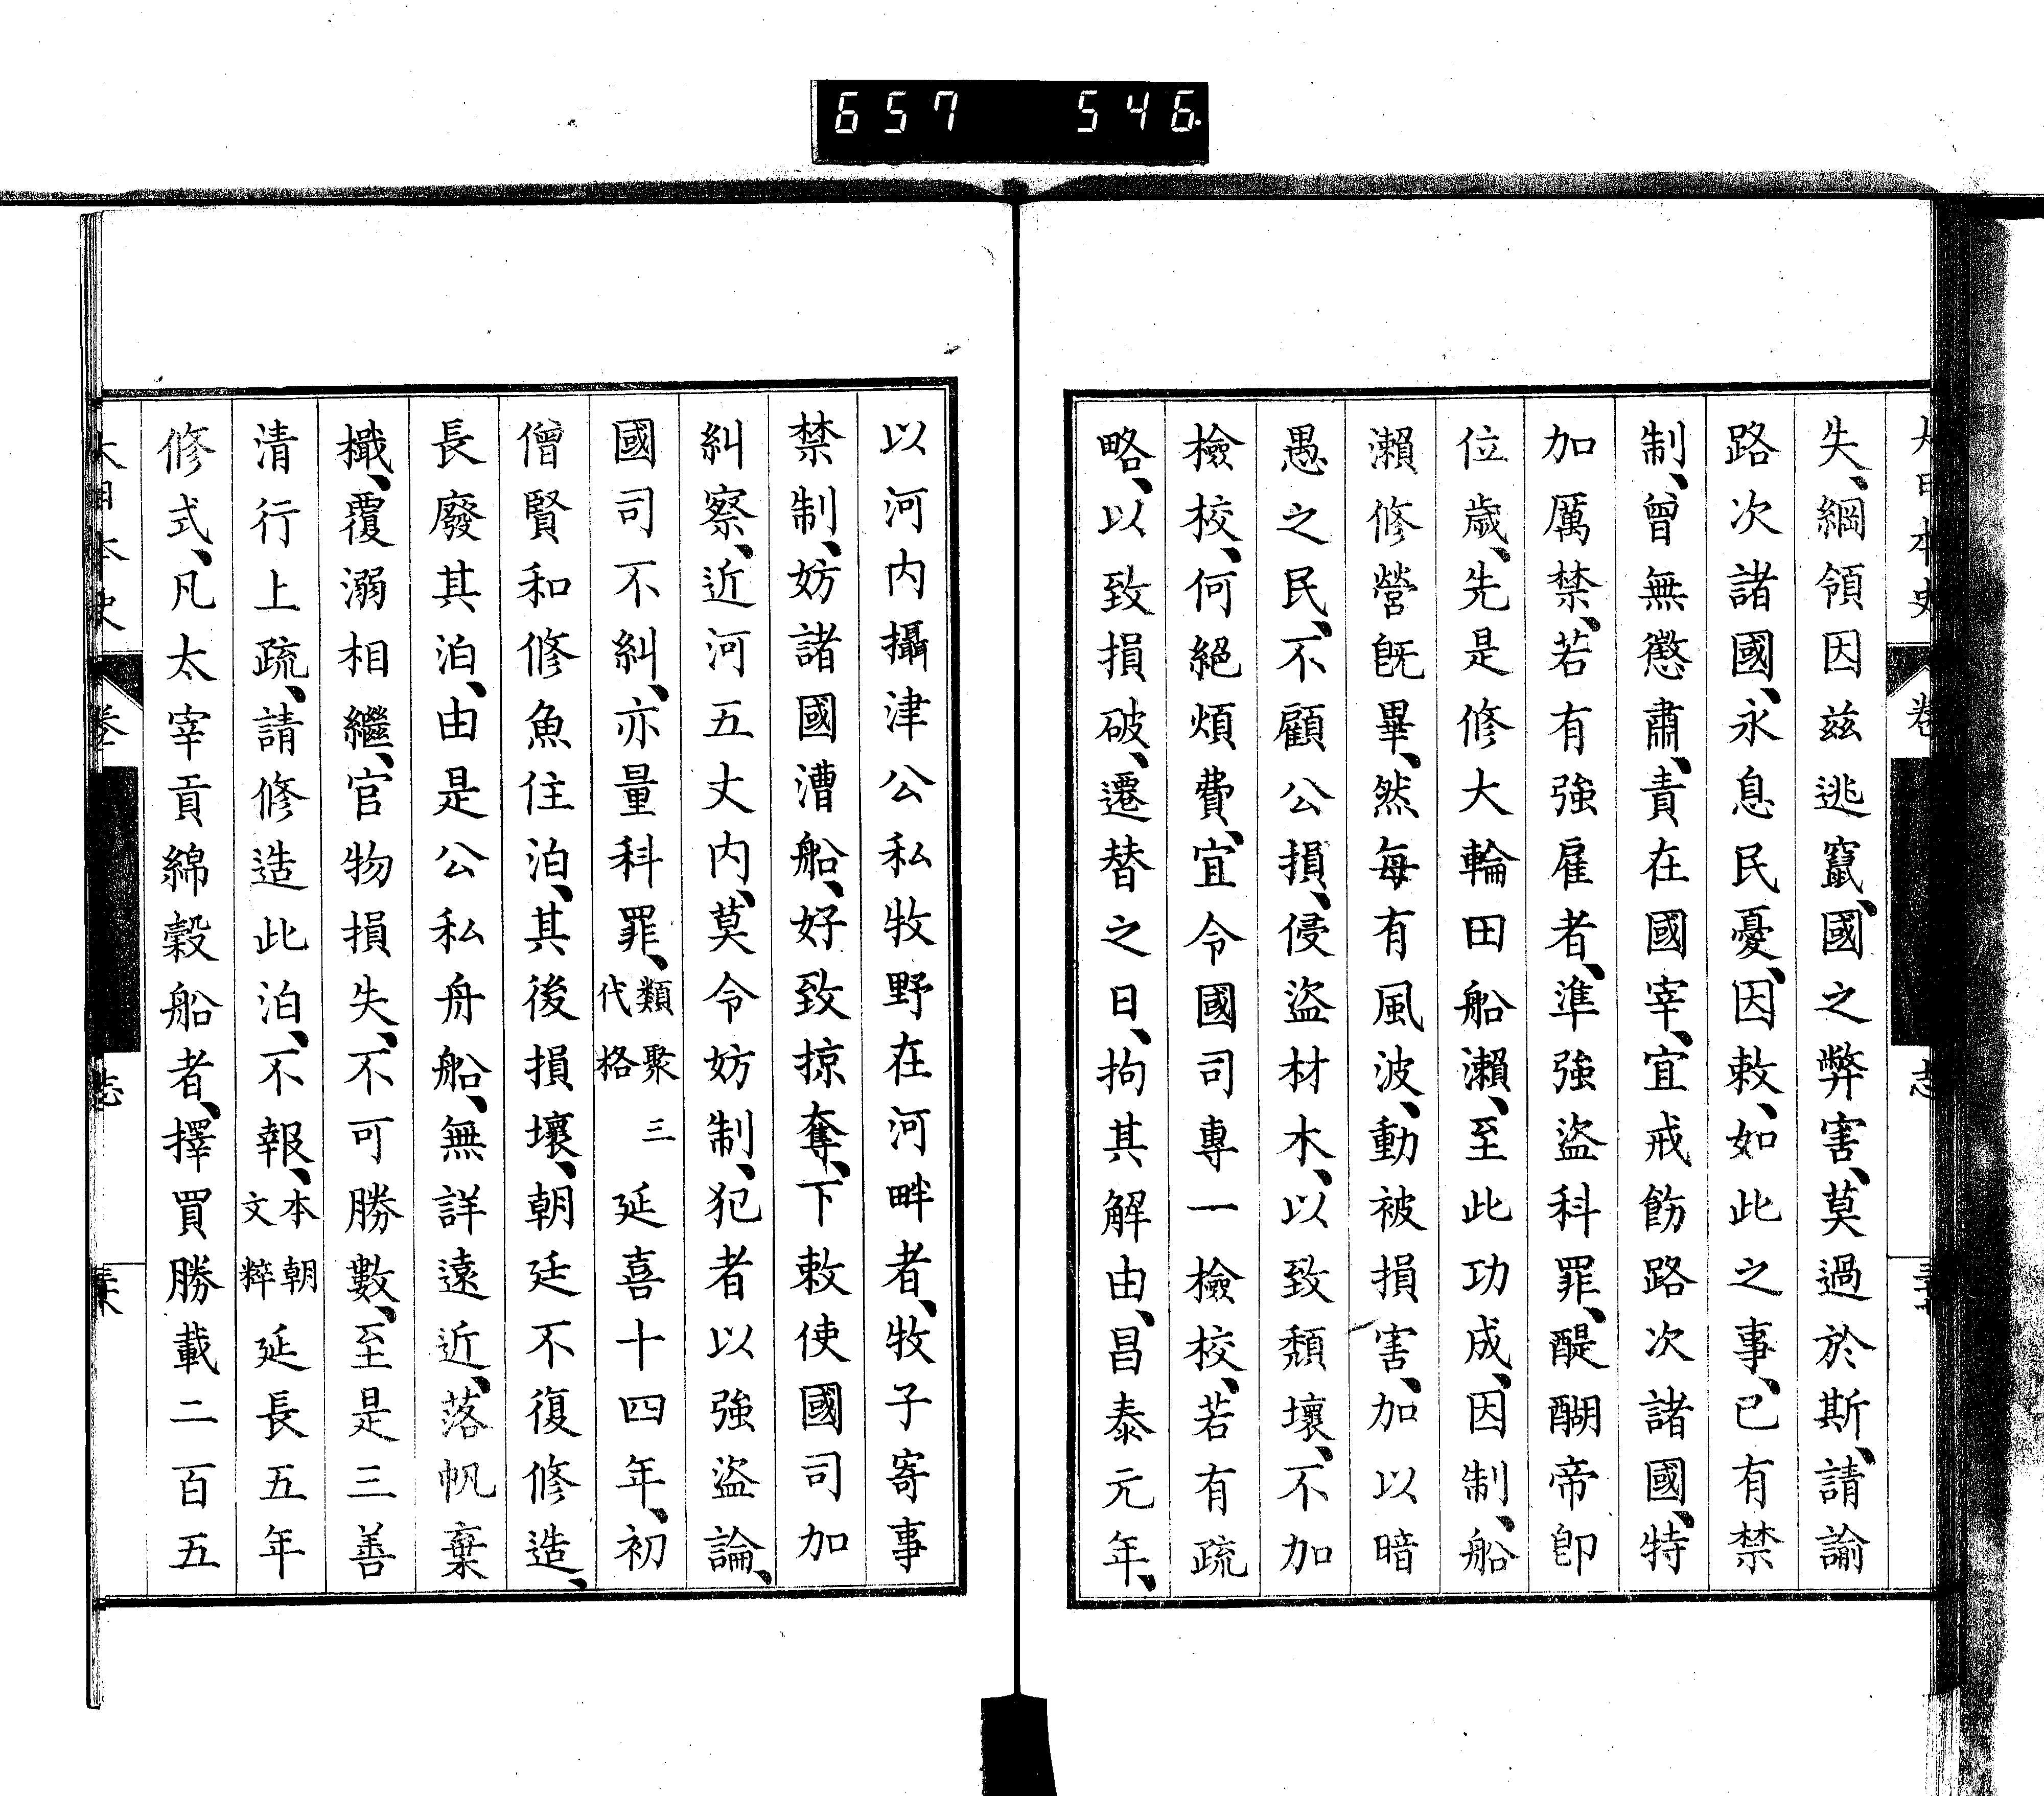 657 546
失、綱領因茲逃竄、國之弊害、莫過於斯、請諭
路次諸國、永息民憂、因敕、如此之事、已有禁
制、曾無懲肅、責在國宰、宜戒飭路次諸國、特
加厲禁、若有強雇者、準強盜科罪、醍醐帝卽
位歲、先是修大輪田船瀨、至此功成、因制、船
瀨修營旣畢、然每有風波、動被損害、加以暗
愚之民、不顧公損、侵盜材木、以致頹壞、不加
檢校、何絕煩費、宜令國司專一檢校、若有疏
略、以致損破、遷替之日、拘其解由、昌泰元年、
以河内攝津公私牧野在河畔者、牧子寄事
禁制、妨諸國漕船、好致掠奪、下敕使國司加
糾察、近河五丈内、莫令妨制、犯者以強盜論、
國司不糾、亦量科罪、類聚三代格 延喜十四年、初
僧賢和修魚住泊、其後損壞、朝廷不復修造、
長廢其泊、由是公私舟船、無詳遠近、落帆棄
檝、覆溺相繼、官物損失、不可勝數、至是三善
清行上疏、請修造此泊、不報、本朝文粹 延長五年
修式、凡太宰貢綿穀船者、擇買勝載二百五
大日本史 卷 志